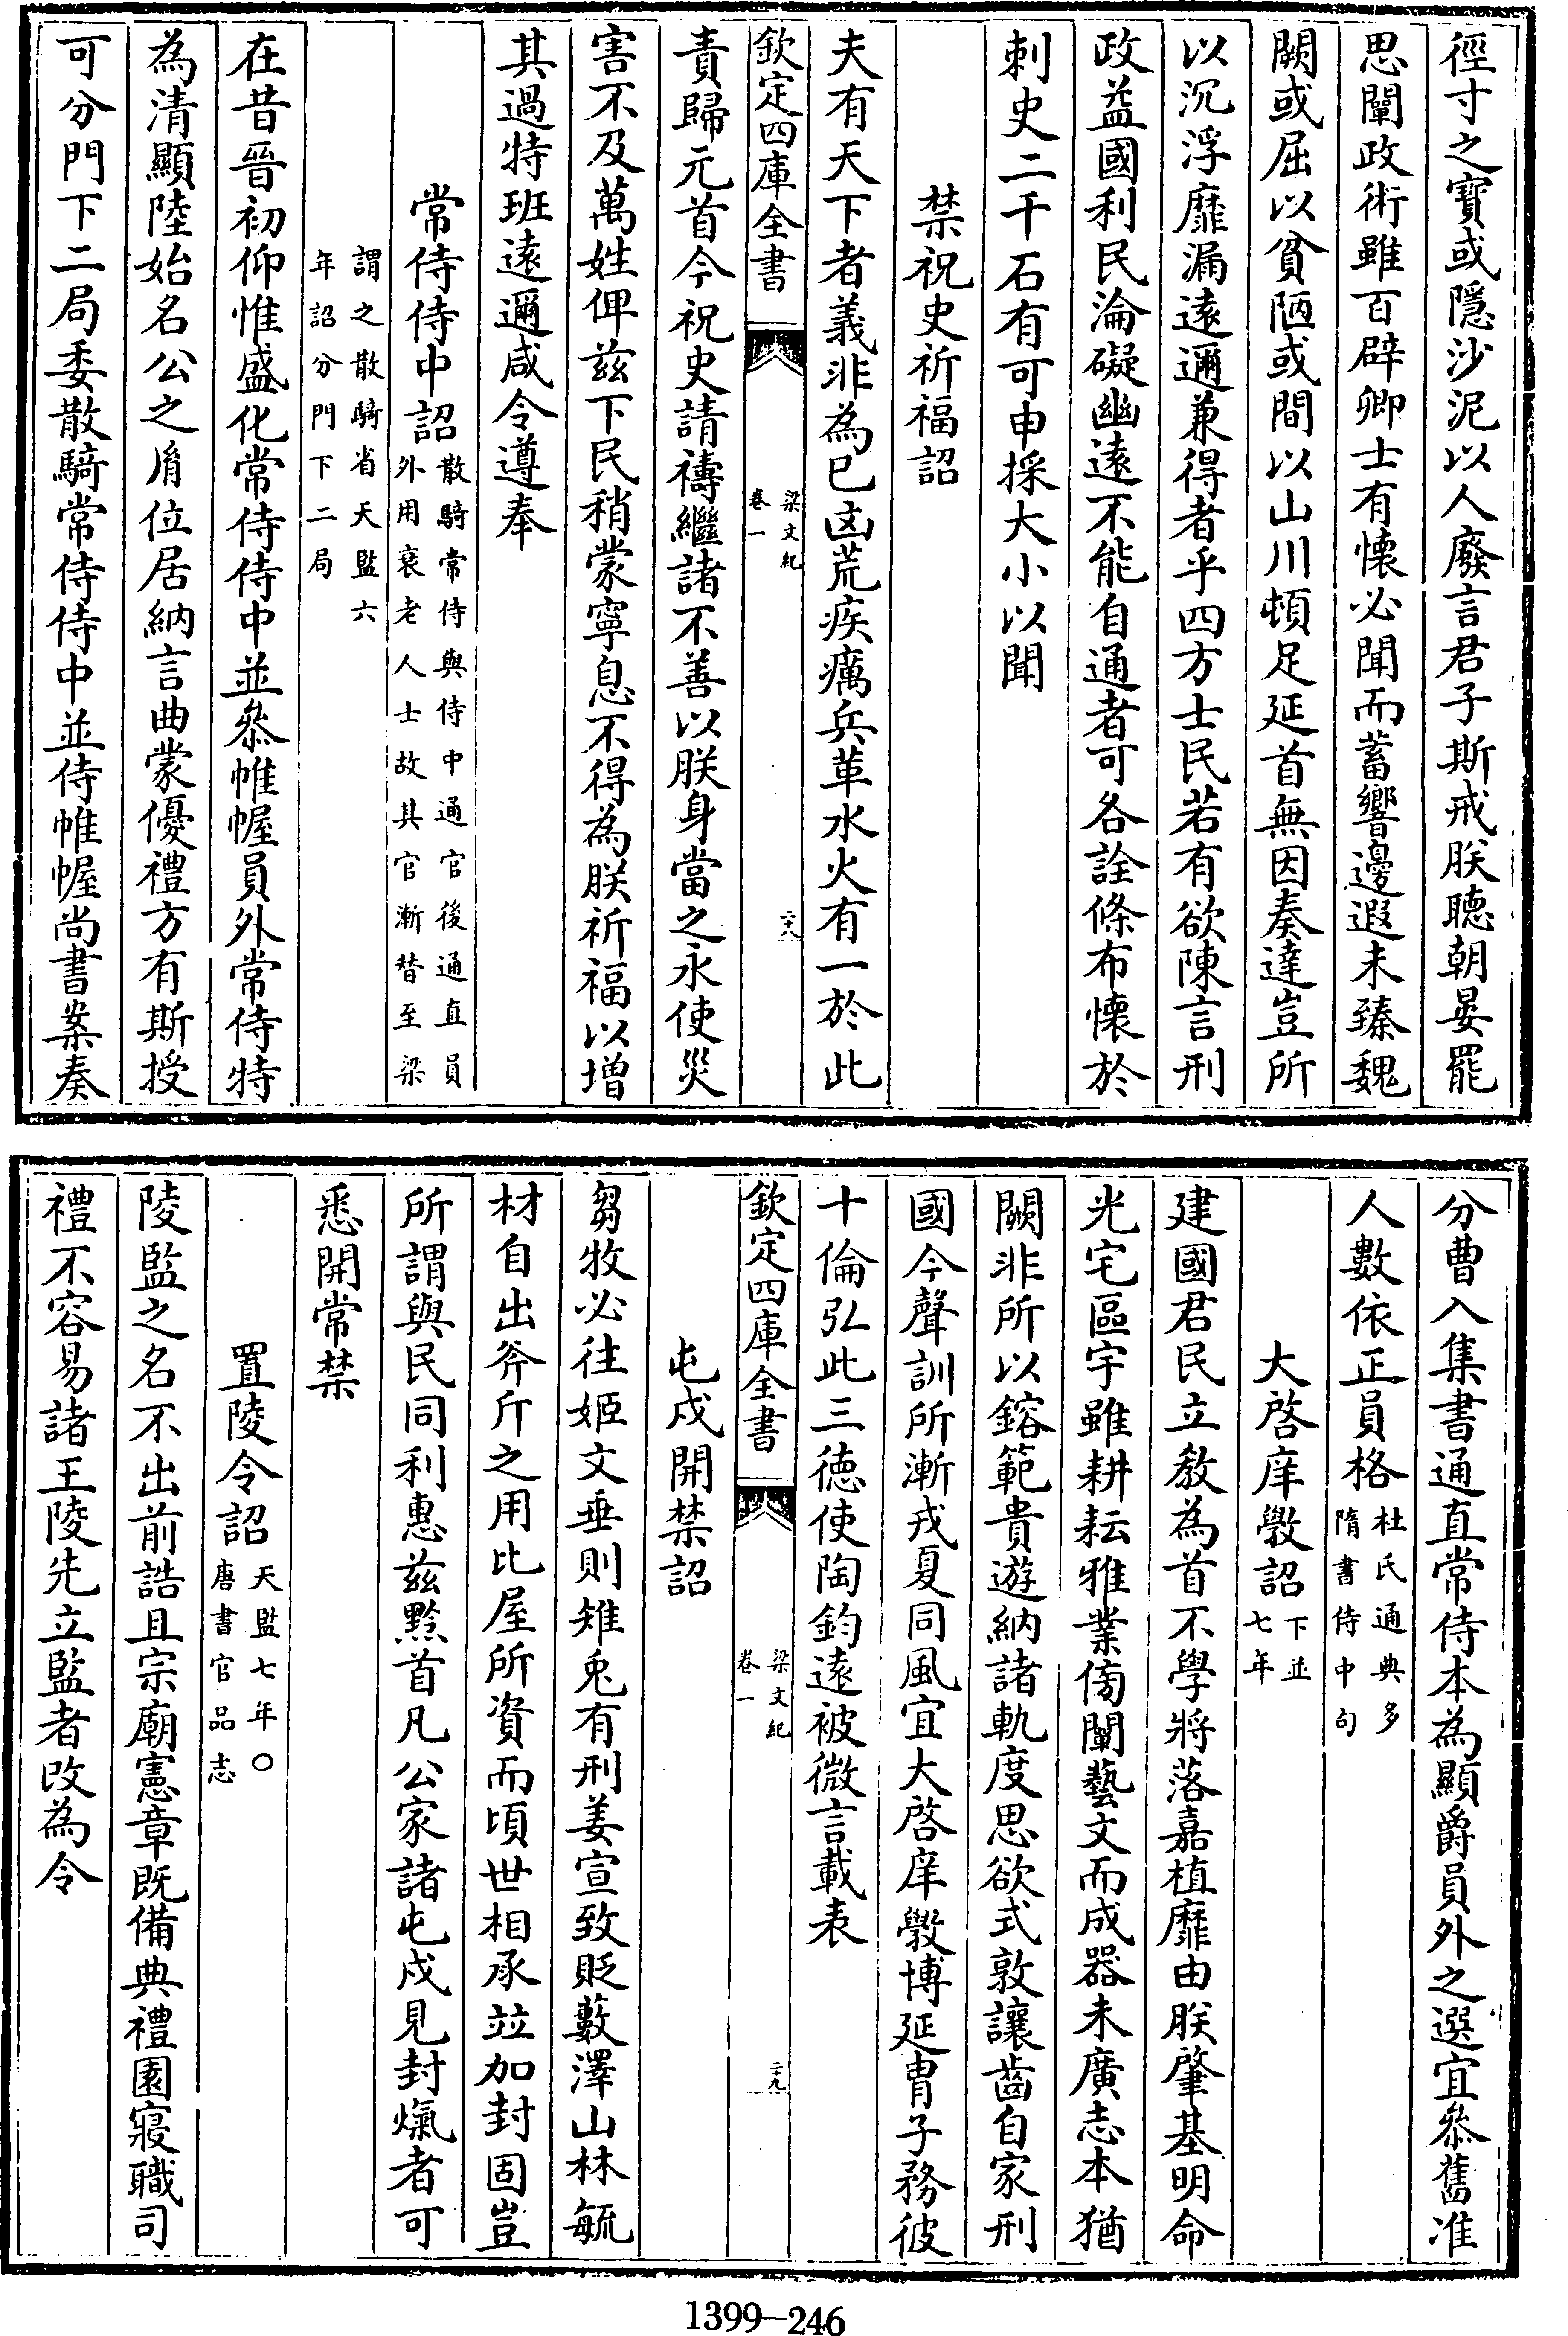 徑寸之寶或隱沙泥以人廢言君子斯戒朕聽朝晏罷
思闡政術雖百辟卿士有懷必聞而蓄響邊遐未臻魏
闕或屈以貧陋或間以山川頓足延首無因奏達豈所
以沉浮靡漏遠邇兼得者乎四方士民若有欲陳言刑
政益國利民淪礙幽遠不能自通者可各詮條布懷於
刺史二千石有可申採大小以聞
禁祝史祈福詔
夫有天下者義非為已凶荒疾癘兵革水火有一於此
欽定四庫全書
梁文紀
卷一
二十八
責歸元首今祝史請禱繼諸不善以朕身當之永使災
害不及萬姓俾茲下民稍蒙寧息不得為朕祈福以增
其過特班遠邇咸令遵奉
常侍侍中詔散騎常侍與侍中通官後通直員
外用衰老人士故其官漸替至梁
謂之散騎省天監六
年詔分門下二局
在昔晉初仰惟盛化常侍侍中並叅帷幄員外常侍特
為清顯陸始名公之胤位居納言曲蒙優禮方有斯授
可分門下二局委散騎常侍侍中並侍帷幄尚書案奏
分曹入集書通直常侍本為顯爵員外之選宜叅舊准
人數依正員格杜氏通典多
隋書侍中句
大啓庠斆詔下並
七年
建國君民立教為首不學將落嘉植靡由朕肇基明命
光宅區宇雖耕耘雅業傍闡藝文而成器未廣志本猶
闕非所以鎔範貴遊納諸軌度思欲式敦讓齒自家刑
國今聲訓所漸戎夏同風宜大啓庠斆博延胄子務彼
十倫弘此三德使陶鈞遠被微言載表
欽定四庫全書
梁文紀
卷一
二十九
屯戍開禁詔
芻牧必往姬文垂則雉兎有刑姜宣致貶藪澤山林毓
材自出斧斤之用比屋所資而頃世相承竝加封固豈
所謂與民同利惠茲黔首凡公家諸屯戍見封熂者可
悉開常禁
置陵令詔天監七年〇
唐書官品志
陵監之名不出前誥且宗廟憲章既備典禮園寢職司
禮不容易諸王陵先立監者改為令
1399-246